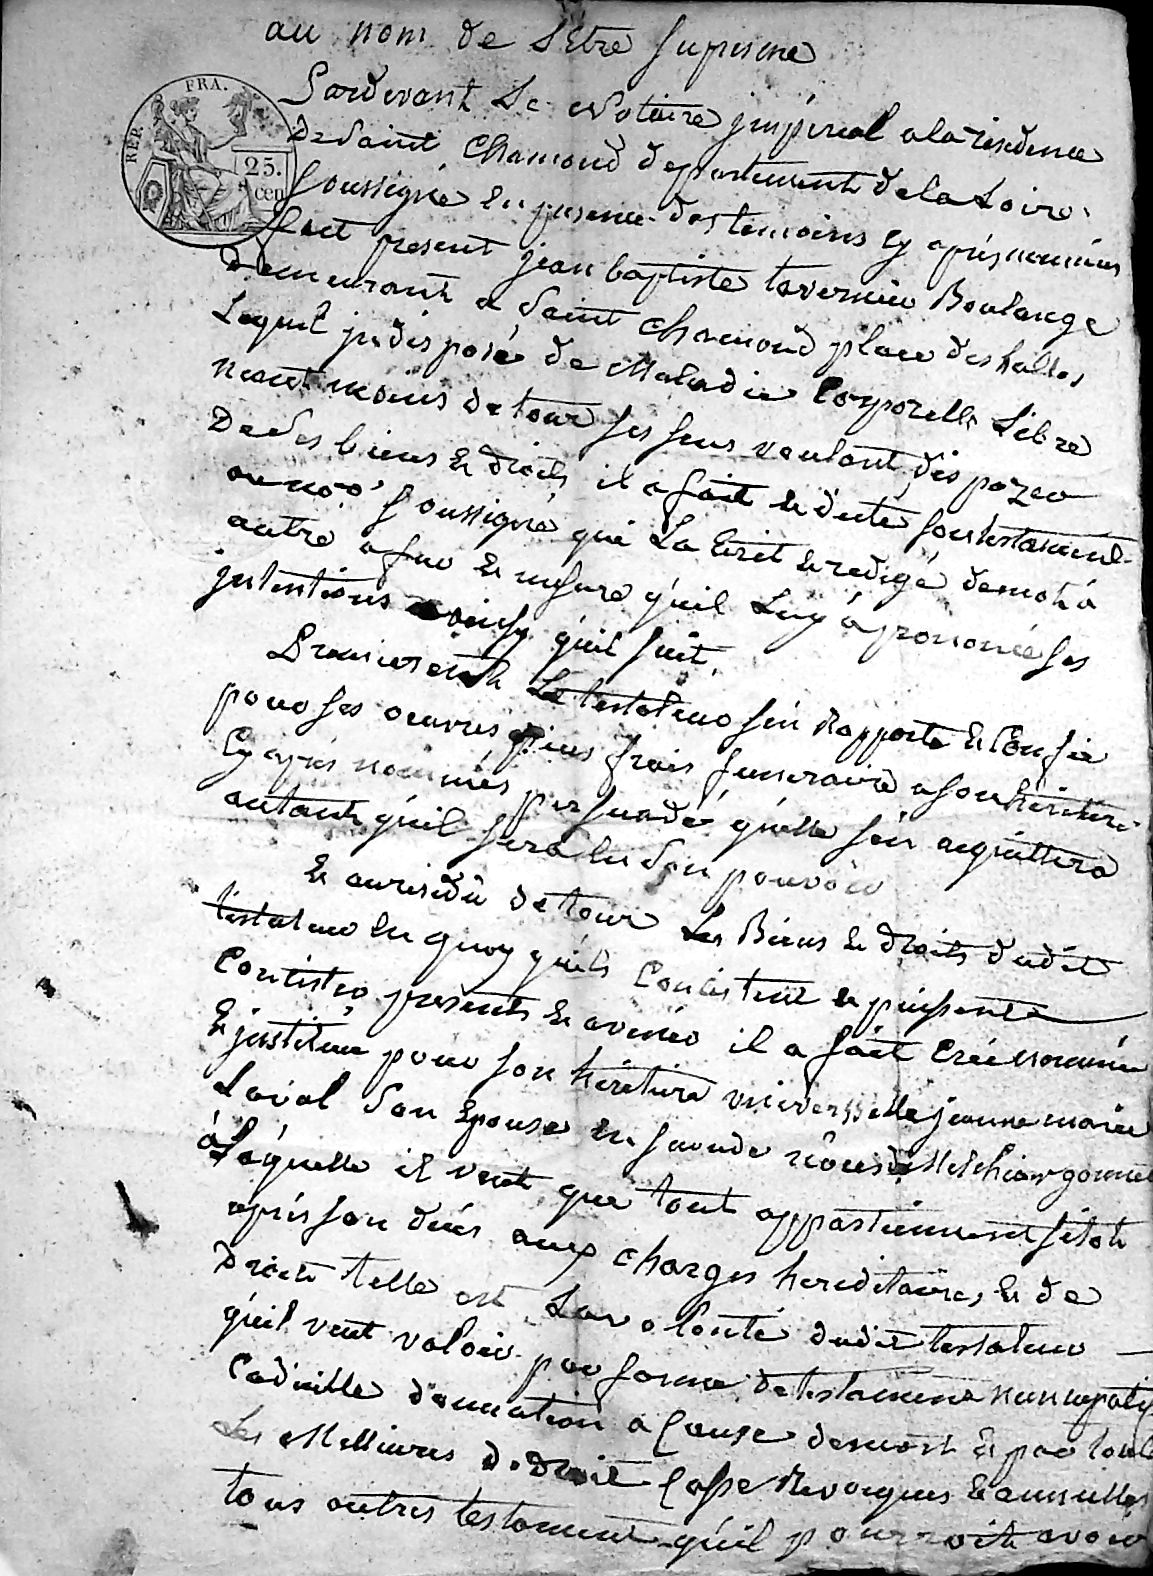 au nom de L'Etre supreme
REP. FRA.
25.
cen
Pardevant Le Notaire jmpérial a la residence
De Saint Chamond departement de la Loire
soussigné En presence des temoins Cy après nommées
fut present jean baptiste tavernier Boulange
demeurant a Saint chamond place des halles
Lequel jndisposé de Maladie Corporelle Libre
neant moins de tour ses sens voulant dispozer
De Ses biens & droits il a fait & dicté son testament
a soussigné qui La Ecrit & redigé de mot á
autre a fur & mesure qu'il Luy á prononcée ses
jntentions ainsy qu'il suit,
Premierement Le testateur s'en Rapporte & Confie
pour ses oeuvres pies frais funeraire a son hèritiere
Cy après nommées persuadé qu'elle s'en acquittera
autant qu'il sera En Son pouvoir
& au residû de tour Les Biens & droits dudit
testateur En quoy qu'ils Concistent & puissente
Concister presents & avenir il a fait Créé nommée
& jnstitue pour son hèritiere universselle jeanne marie
Laval Son Epouse En seconde nôces de Melchior gonnet
á Laquelle il veut que tout appartiennent sitot
après son deces aux charges hereditaires & de
Droit telle est La volonté dudit testateur
qu'il veut valoir par forme de testament nuncupatif
Codicille donnation a Cause de mort & par toute
Les Meilleures De Droit Casse Revoques & annulles
tous autres testament qu'il pourroit avoir